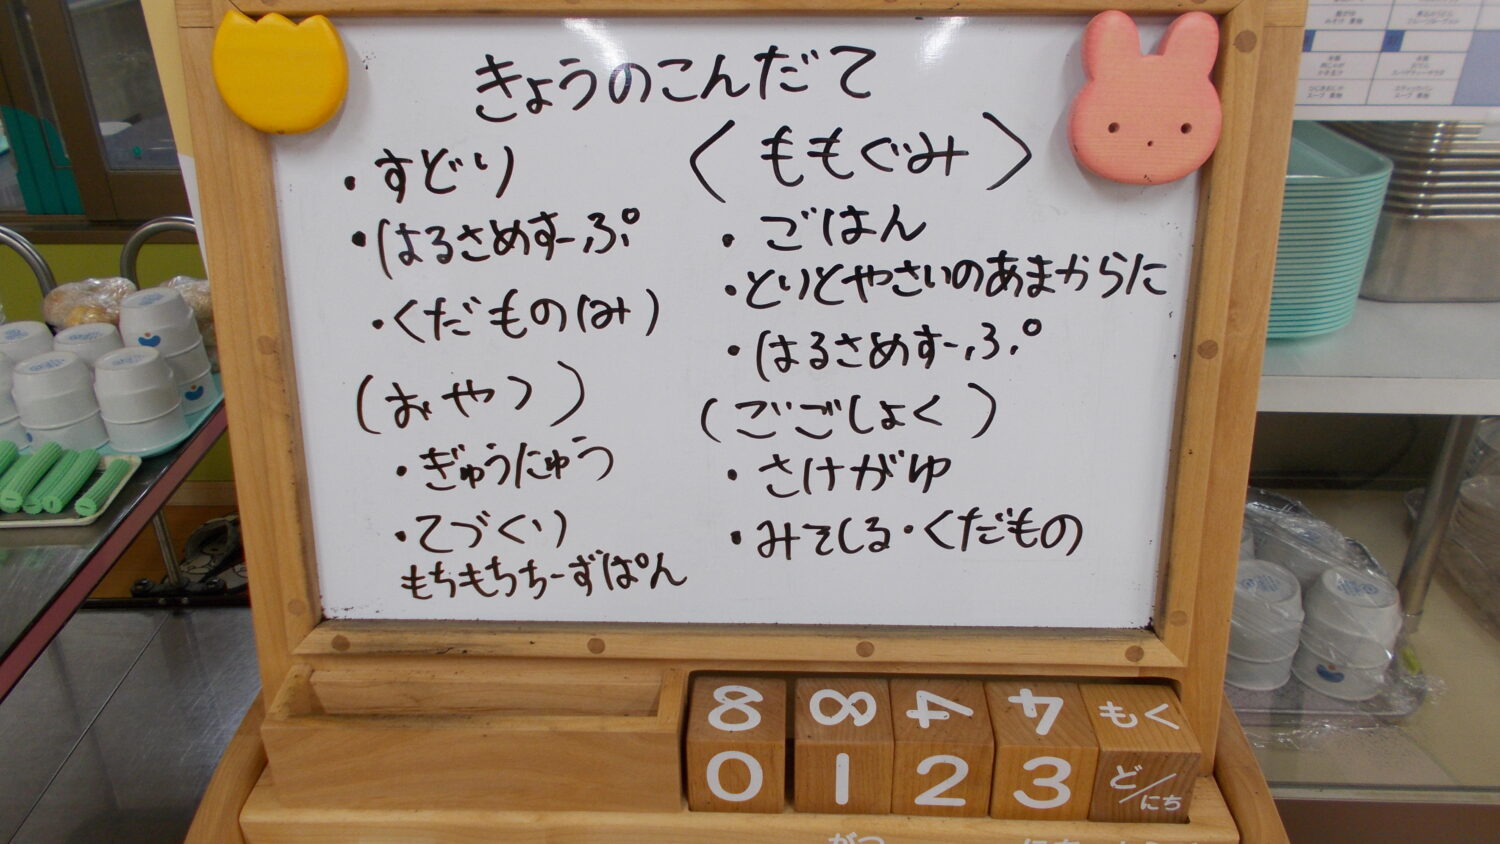 きょうのこんだて
・すどり
・はるさめすーぷ
・くだもの(み)
(おやつ)
・ぎゅうにゅう
・てづくり
もちもちちーずぱん
〈ももぐみ〉
・ごはん
・とりとやさいのあまからに
・はるさめすーぷ
(ごごしょく)
・さけがゆ
・みそしる・くだもの
8 8 4 4 もく
0 1 2 3 ど/にち
がつ